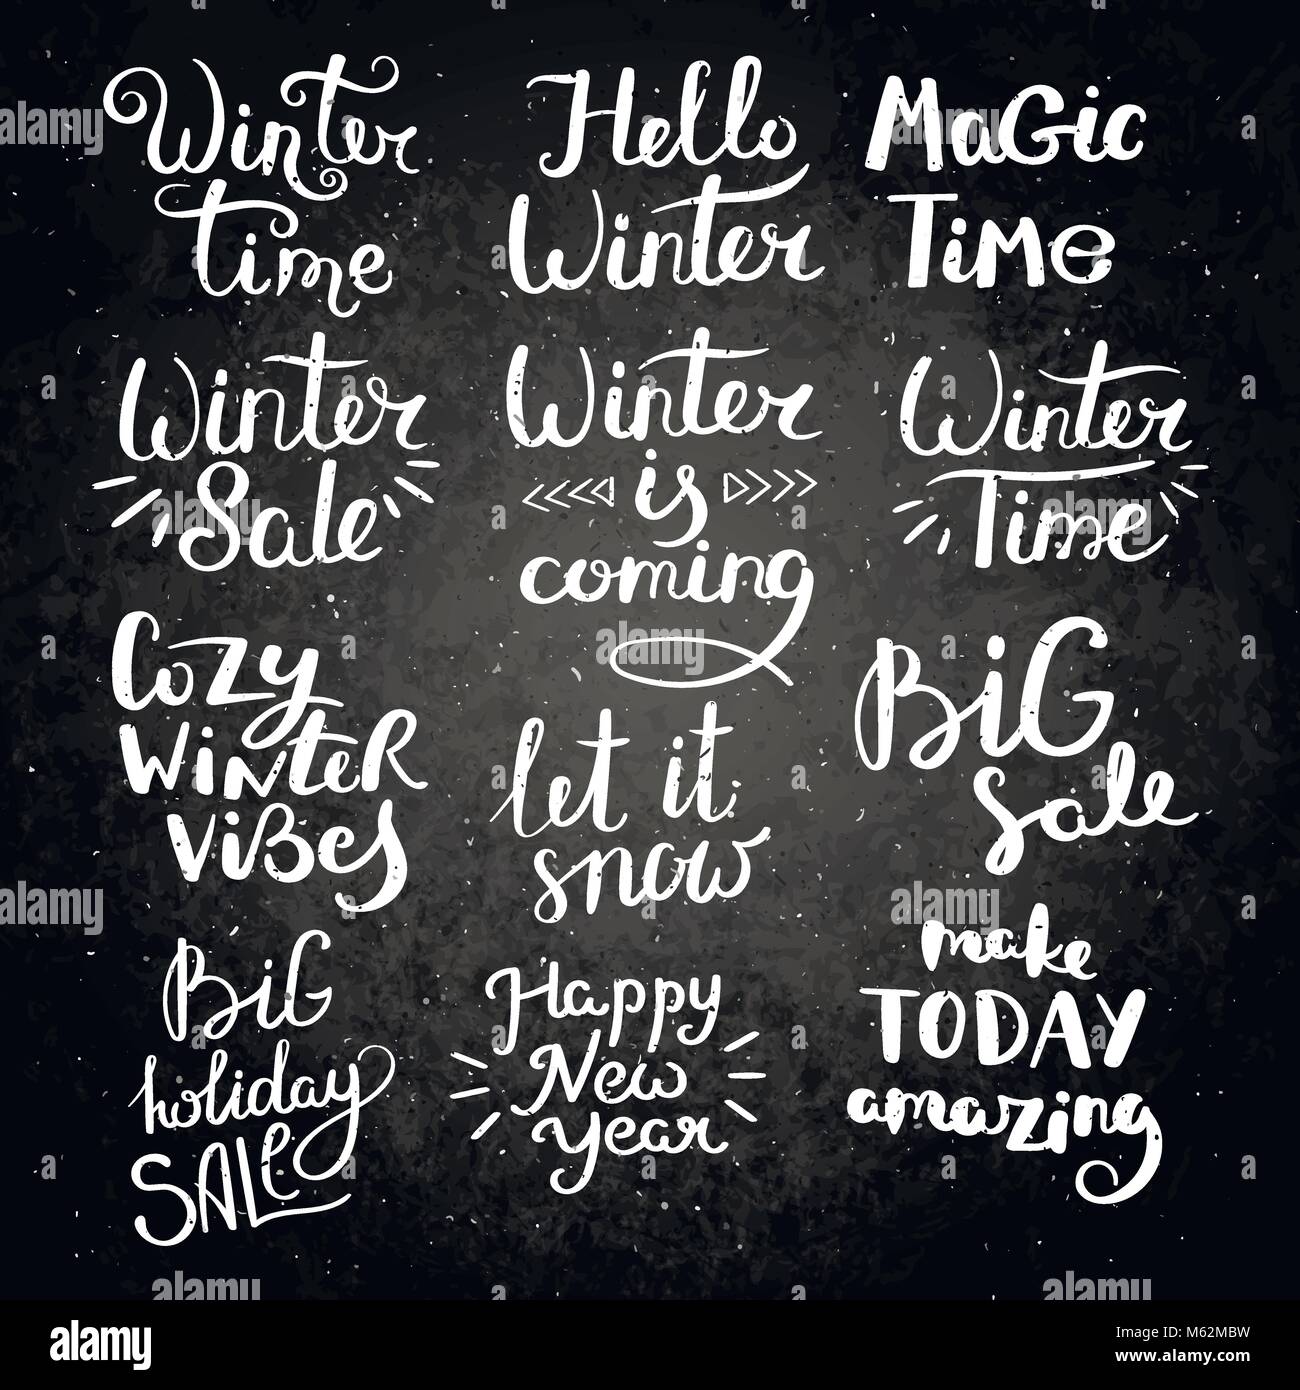 Winter
time
Hello
Winter
Magic
Time
Winter
Sale
Winter
is
coming
Winter
Time
Cozy
Winter
Vibes
let it
snow
BiG
Sale
BiG
holiday
SALe
Happy
New
Year
make
TODAY
amazing
alamy
Image ID: M62MBW
www.alamy.com